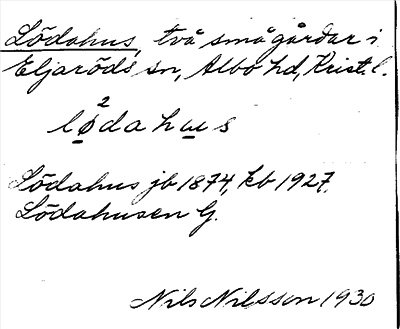 Lödahus, två smågårdar i
Eljaröds sn, Albo hd, Krist. l.
2
lødahus
Lödahus jb 1874, kb 1927.
Lödahusen G.
Nils Nilsson 1930